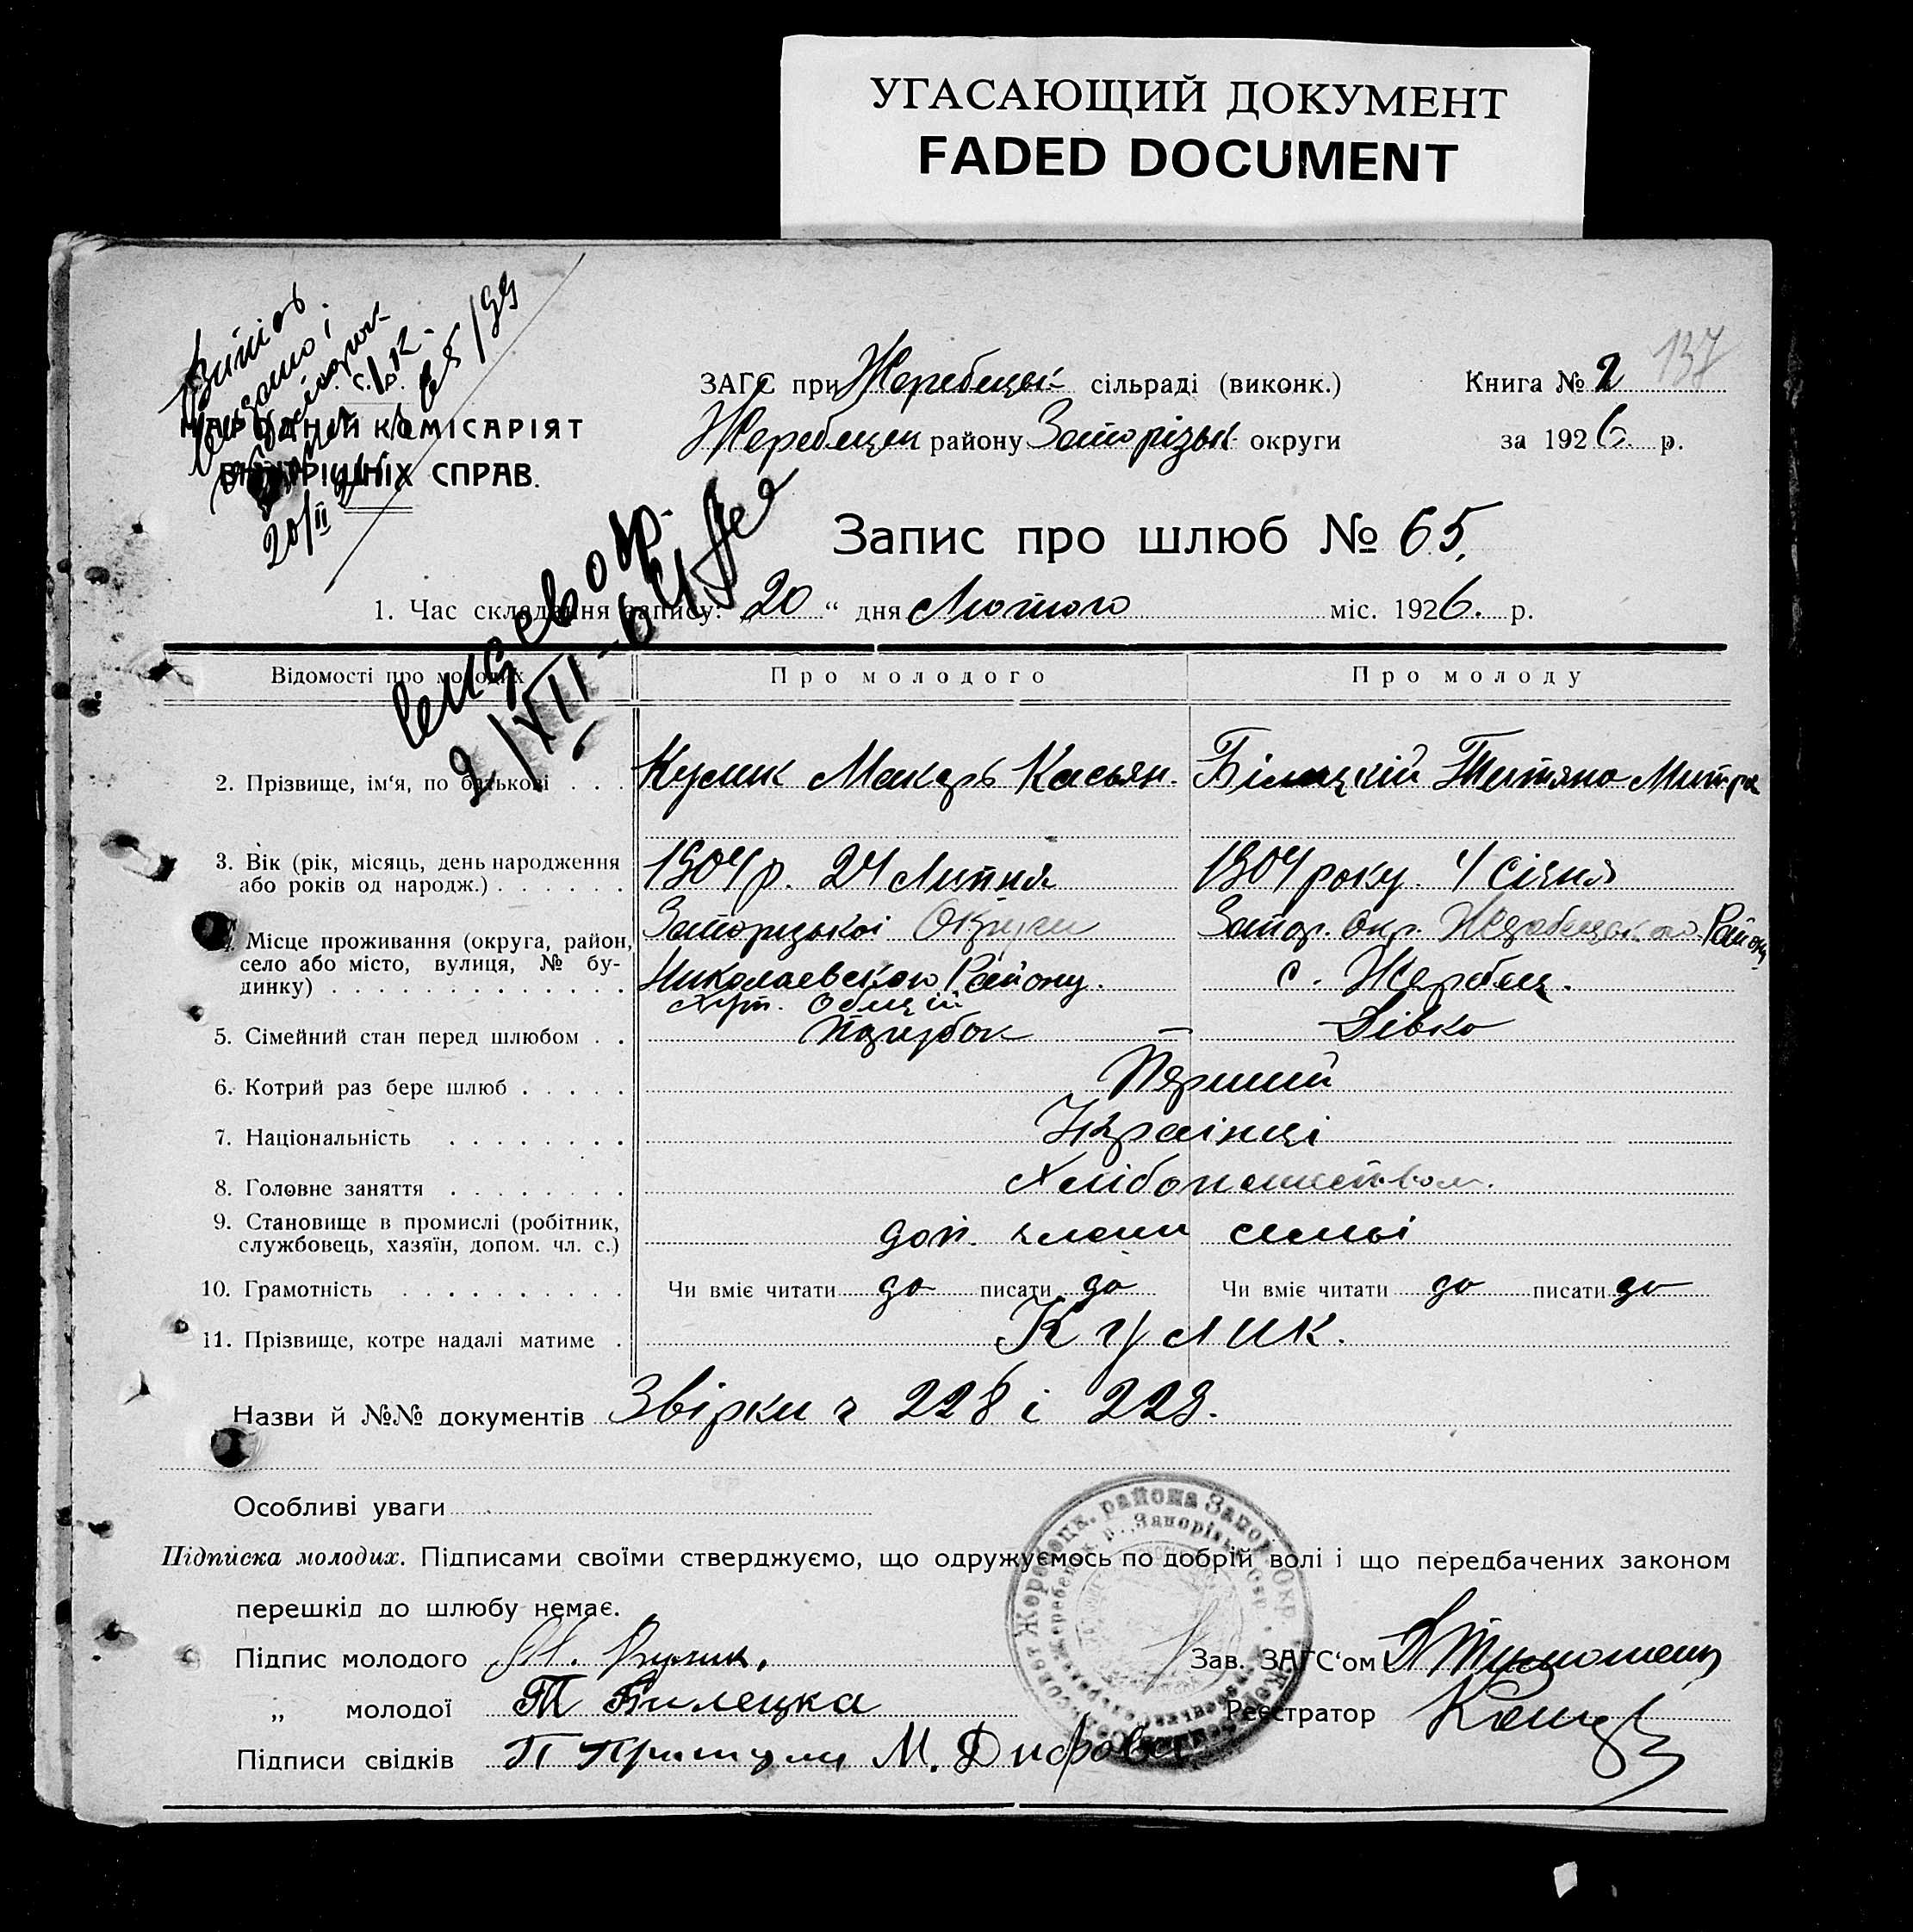 УГАСАЮЩИЙ ДОКУМЕНТ
FADED DOCUMENT
137
ЗАГС при Жеребецькі сільраді (виконк.) Книга № 2
Жеребецьк району Запорізьк округи за 1926. р.
НАРОДНІЙ КОМІСАРІЯТ
ВНУТРІШНІХ СПРАВ.
20/II
Запис про шлюб № 65.
1. Час складання запису: „20“ дня Лютого міс. 1926. р.
9/XII-6
Відомості про молодих Про молодого Про молоду
2. Прізвище, ім‘я, по батькові . . . Кулик Макарь Касьян. Білецкій Тетяна Митра
3. Вік (рік, місяць, день народження 1904 р. 24 Липня 1904 року. 4 Січня
або років од народж.) . . . . . .
4. Місце проживання (округа, район, Запоризькоі Округи Запор. Окр. Жеребецького Району
село або місто, вулиця, № бу- Николаевского Району. с. Жеребец.
динку) . . . . . . . . . . . . . хут. Общій
5. Сімейний стан перед шлюбом . . Парубок Дівка
6. Котрий раз бере шлюб . . . . . Перший
7. Національність . . . . . . . . Украінці
8. Головне заняття . . . . . . . . Хлібопашеством.
9. Становище в промислі (робітник, доп. члени семьі
службовець, хазяїн, допом. чл. с.)
10. Грамотність . . . . . . . . . . Чи вміє читати да писати да Чи вміє читати да писати да
11. Прізвище, котре надалі матиме . Кулик.
Назви й №№ документів Звірки ч 228 і 229.
Особливі уваги
Підписка молодих. Підписами своїми стверджуємо, що одружуємось по добрій волі і що передбачених законом
перешкід до шлюбу немає.
Підпис молодого М. Кулик. Зав. ЗАГС‘ом
„ молодої Т Билецка Реєстратор
Підписи свідків П М.